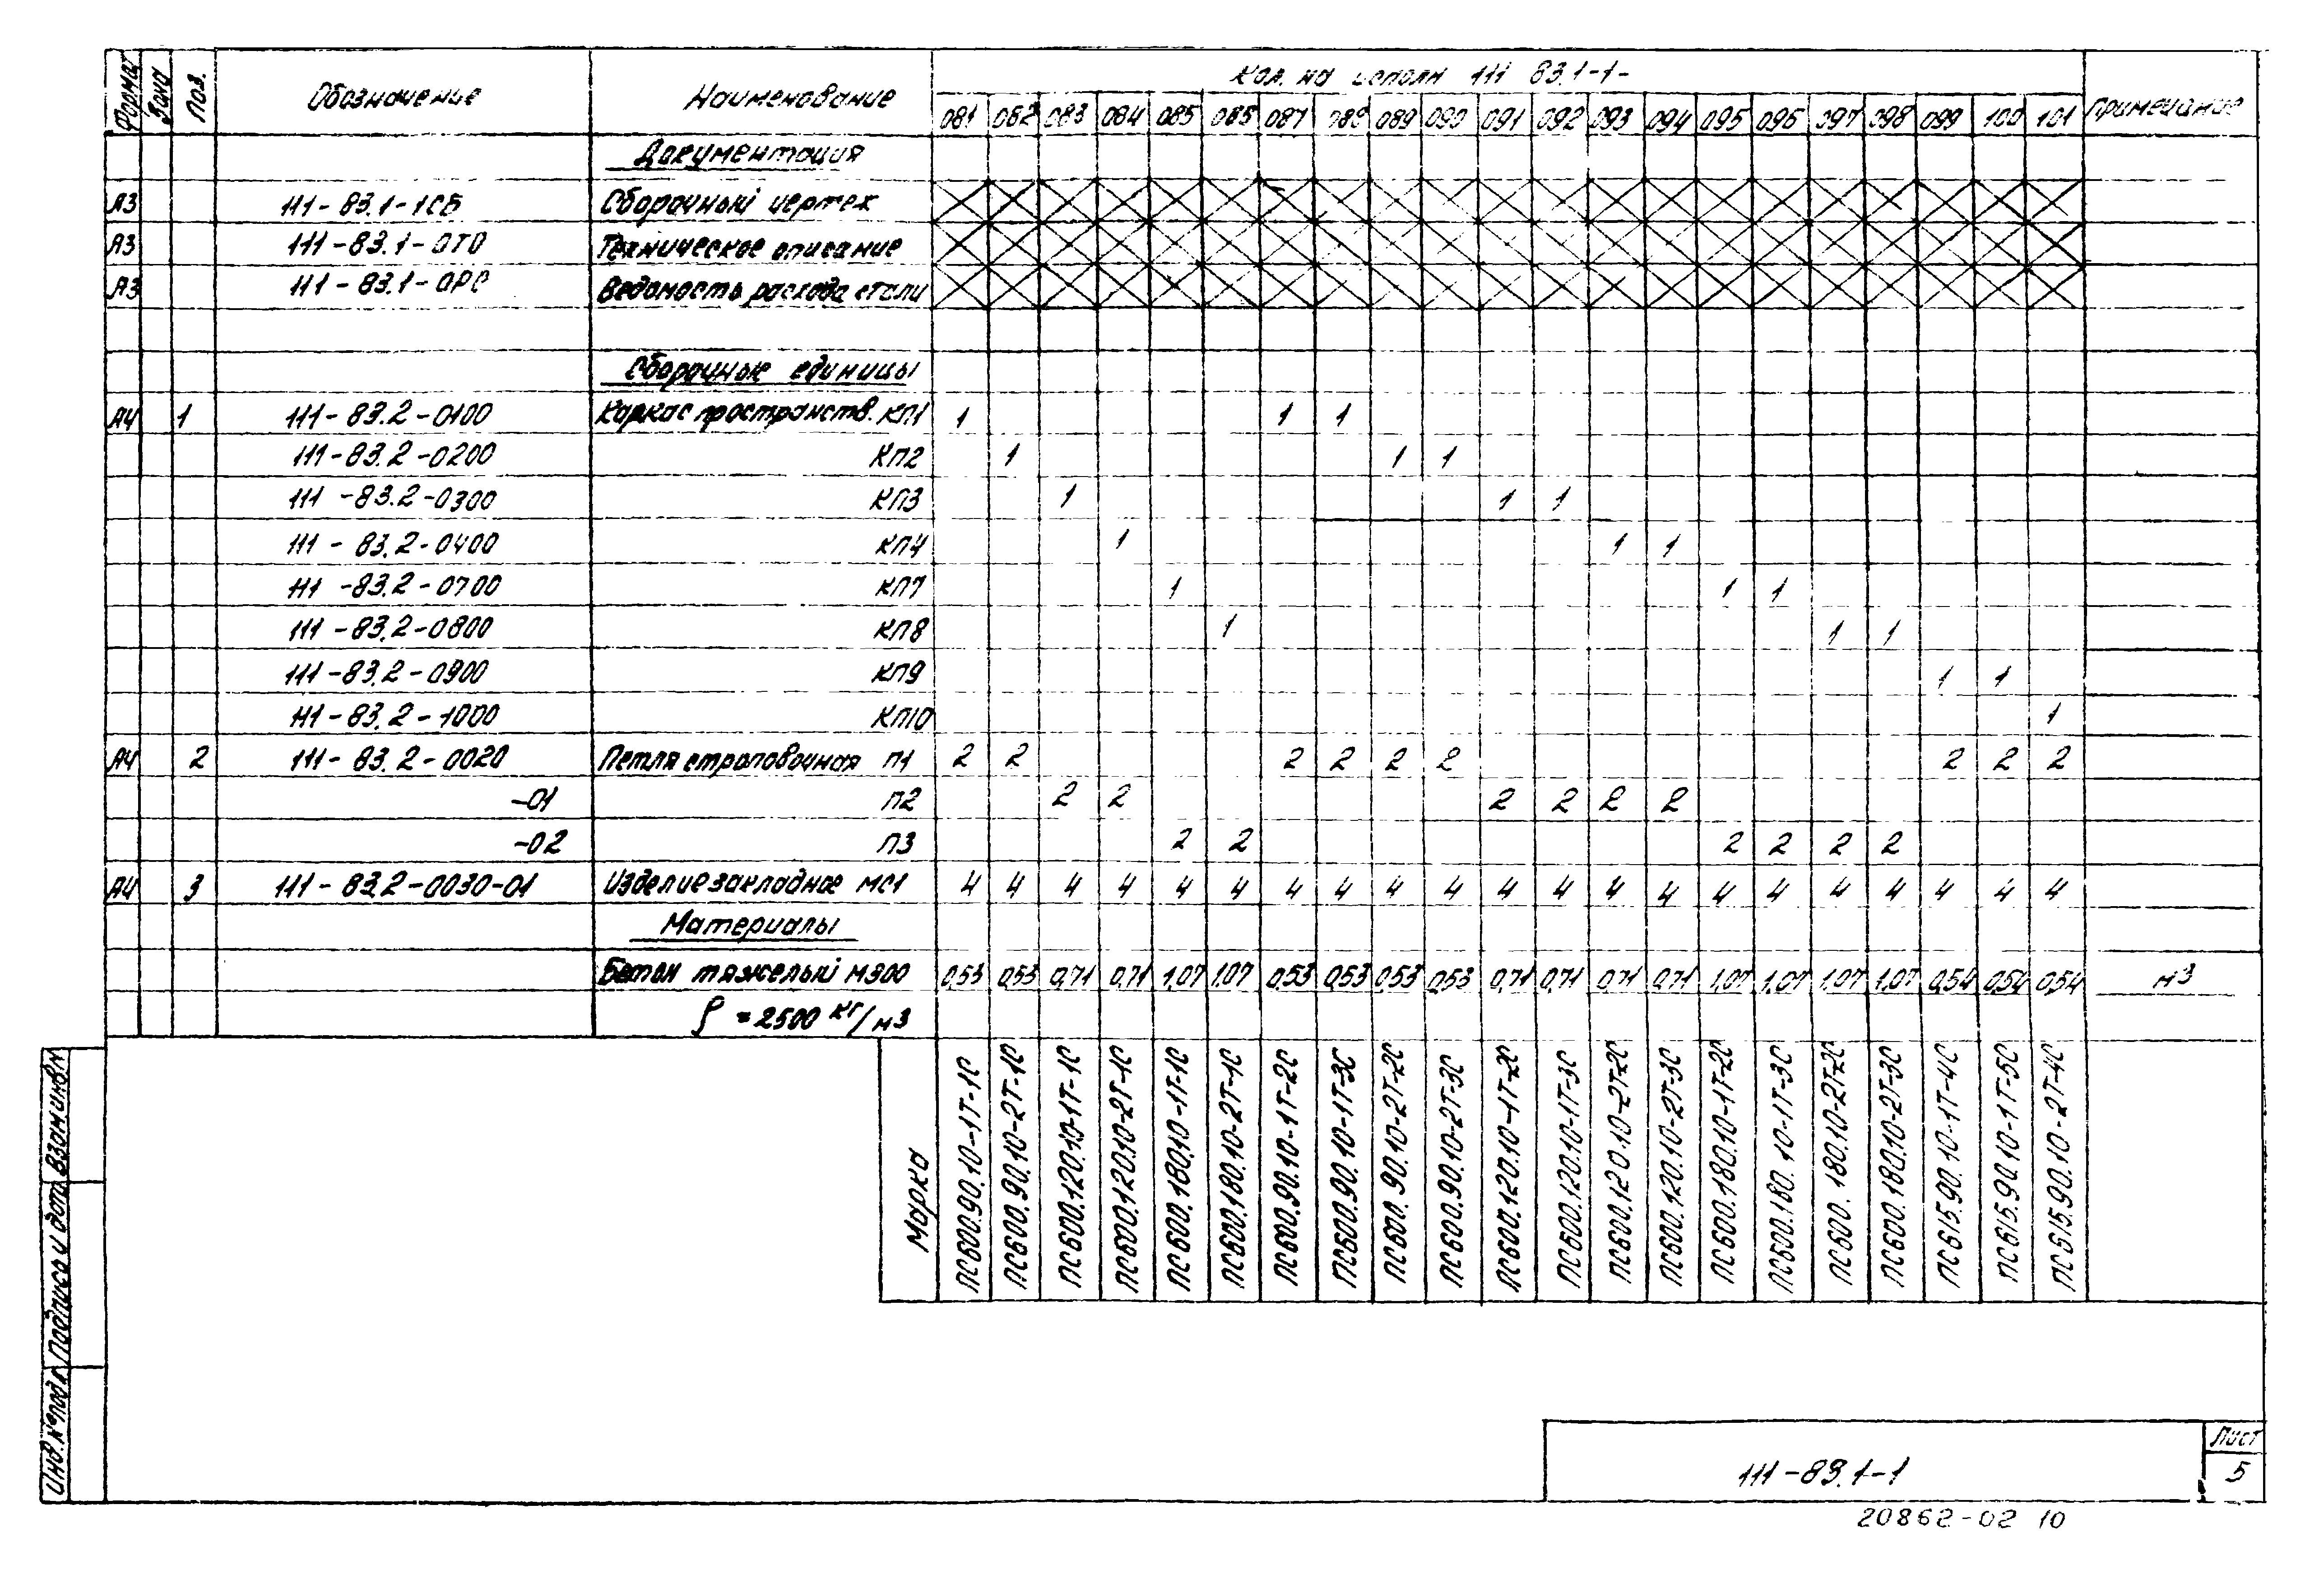 Формат Зона Поз. Обозначение Наименование Кол. на исполн 111 83.1-1- Примечание
081 082 083 084 085 086 087 088 089 090 091 092 093 094 095 096 097 098 099 100 101
Документация
А3 111-83.1-1СБ Сборочный чертеж
А3 111-83.1-0ТО Техническое описание
А3 111-83.1-0РС Ведомость расхода стали
Сборочные единицы
А4 1 111-83.2-0100 Каркас пространств. КП1 1 1 1
111-83.2-0200 КП2 1 1 1
111-83.2-0300 КП3 1 1 1
111-83.2-0400 КП4 1 1 1
111-83.2-0700 КП7 1 1 1
111-83.2-0800 КП8 1 1 1
111-83.2-0900 КП9 1 1
111-83.2-1000 КП10 1
А4 2 111-83.2-0020 Петля строповочная П1 2 2 2 2 2 2 2 2 2
-01 П2 2 2 2 2 2 2
-02 П3 2 2 2 2 2 2
А4 3 111-83.2-0030-01 Изделие закладное МС1 4 4 4 4 4 4 4 4 4 4 4 4 4 4 4 4 4 4 4 4 4
Материалы
Бетон тяжелый М300 0,53 0,53 0,71 0,71 1,07 1,07 0,53 0,53 0,53 0,53 0,71 0,71 0,71 0,71 1,07 1,07 1,07 1,07 0,54 0,54 0,54 м3
ρ = 2500 кг/м3
Марка
ПС600.90.10-1Т-1С
ПС600.90.10-2Т-1С
ПС600.120.10-1Т-1С
ПС600.120.10-2Т-1С
ПС600.180.10-1Т-1С
ПС600.180.10-2Т-1С
ПС600.90.10-1Т-2С
ПС600.90.10-1Т-3С
ПС600.90.10-2Т-2С
ПС600.90.10-2Т-3С
ПС600.120.10-1Т-2С
ПС600.120.10-1Т-3С
ПС600.120.10-2Т-2С
ПС600.120.10-2Т-3С
ПС600.180.10-1Т-2С
ПС600.180.10-1Т-3С
ПС600.180.10-2Т-2С
ПС600.180.10-2Т-3С
ПС615.90.10-1Т-4С
ПС615.90.10-1Т-5С
ПС615.90.10-2Т-4С
Инв.№подл Подпись и дата Взам инв.№
111-83.1-1
Лист
5
20862-02 10